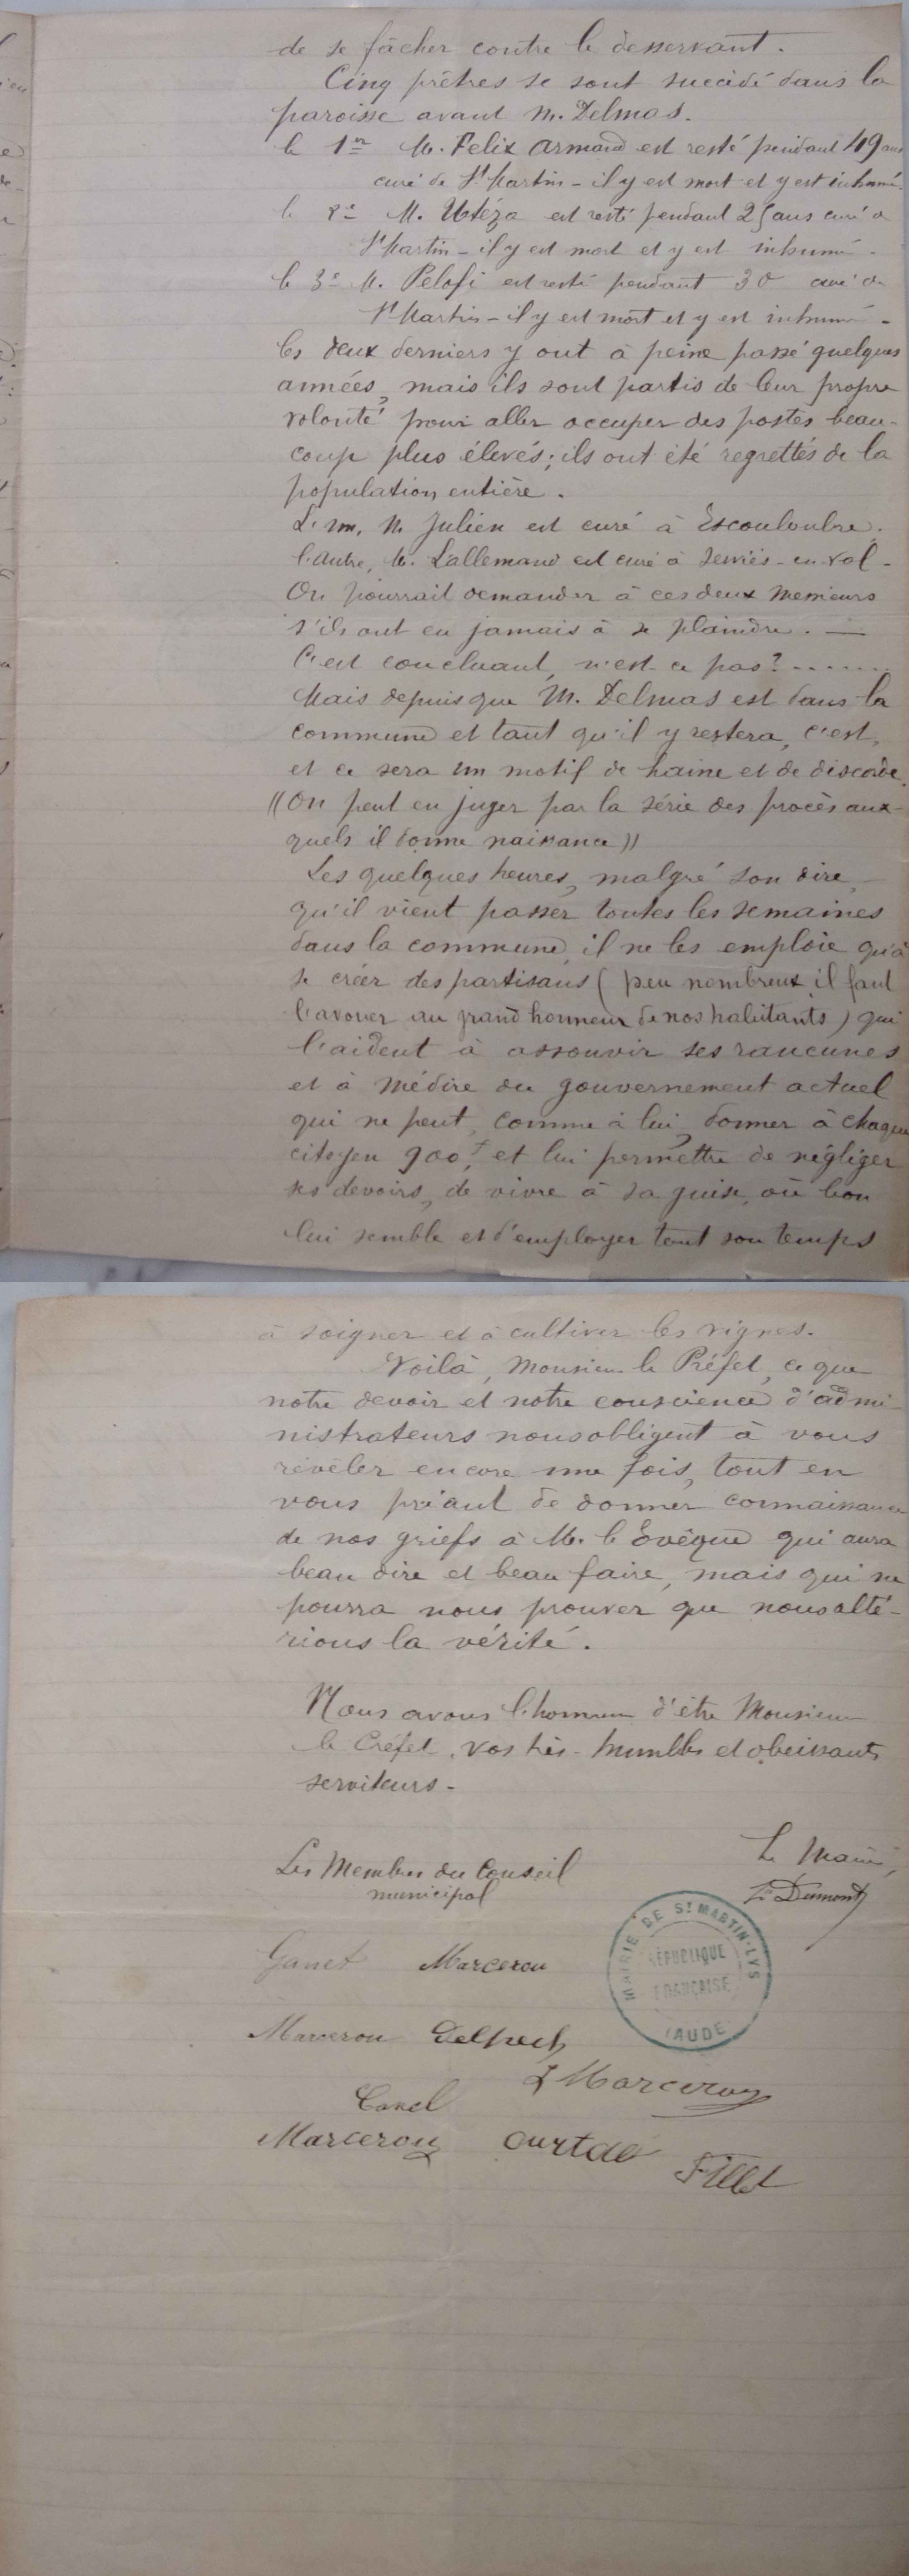 de se fâcher contre le desservant.
Cinq prêtres se sont succédé dans la
paroisse avant M. Delmas.
le 1er M. Felix Armand est resté pendant 49 ans
curé de St Martin - il y est mort et y est inhumé.
le 2e M. Utéza est resté pendant 25 ans curé à
St Martin - il y est mort et y est inhumé -
le 3e M. Pelofi est resté pendant 30 curé à
St Martin - il y est mort et y est inhumé -
les deux derniers y ont à peine passé quelques
années, mais ils sont partis de leur propre
volonté pour aller occuper des postes beau-
coup plus élevés; ils ont été regrettés de la
population entière.
L'un, M. Julien est curé à Escouloubre,
l'autre, M. Lallemand est curé à Serviès-en-Val -
On pourrait demander à ces deux Messieurs
s'ils ont eu jamais à se plaindre. —
C'est concluant, n'est-ce pas? .......
Mais depuis que M. Delmas est dans la
commune et tant qu'il y restera, c'est,
et ce sera un motif de haine et de discorde.
((On peut en juger par la série des procès aux-
quels il donne naissance))
Les quelques heures, malgré son dire, -
qu'il vient passer toutes les semaines
dans la commune, il ne les emploie qu'à
se créer des partisans (peu nombreux il faut
l'avouer au grand honneur de nos habitants) qui
l'aident à assouvir ses rancunes
et à médire du gouvernement actuel
qui ne peut, comme à lui, donner à chaque
citoyen 900f, et lui permettre de négliger
ses devoirs, de vivre à sa guise, où bon
lui semble et d'employer tout son temps
à soigner et à cultiver les vignes.
Voilà, Monsieur le Préfet, ce que
notre devoir et notre conscience d'admi-
nistrateurs nous obligent à vous
révéler encore une fois, tout en
vous priant de donner connaissance
de nos griefs à M. l'Evêque qui aura
beau dire et beau faire, mais qui ne
pourra nous prouver que nous alté-
rions la vérité.
Nous avons l'honneur d'être Monsieur
le Préfet, vos très-humbles et obeissants
serviteurs -
Les Membres du Conseil
municipal
Le Maire,
Dumont
MAIRIE DE ST MARTIN-LYS
RÉPUBLIQUE
FRANÇAISE
(AUDE)
Ganet Marcerou
Marcerou Delpech
J Marcerou
Canel
Marcerou Curtde
Fillet